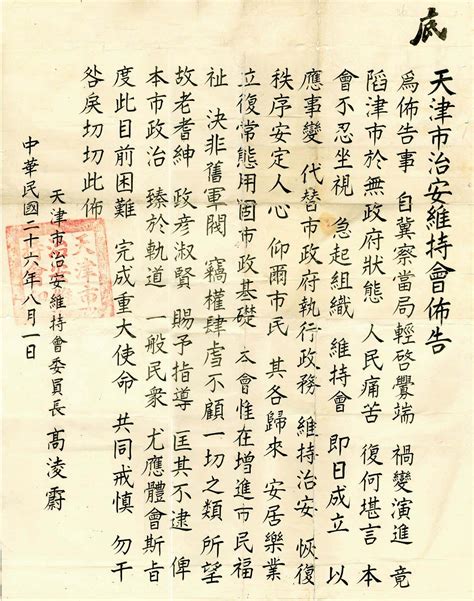 底
天津市治安維持會佈告
為佈告事 自冀察當局輕啓釁端 禍變演進 竟
陷津市於無政府狀態 人民痛苦 復何堪言 本
會不忍坐視 急起組織 維持會 即日成立 以
應事變 代替市政府執行政務 維持治安 恢復
秩序安定人心 仰爾市民 其各歸來 安居樂業
立復常態用固市政基礎 本會惟在增進市民福
祉 決非舊軍閥 竊權肆虐不顧一切之類 所望
故老耆紳 政彥淑賢 賜予指導 匡其不逮 俾
本市政治 臻於軌道 一般民衆 尤應體會斯旨
度此目前困難 完成重大使命 共同戒慎 勿干
咎戾切切此佈
天津市治安維持會委員長 高凌霨
中華民國二十六年八月一日
天津市